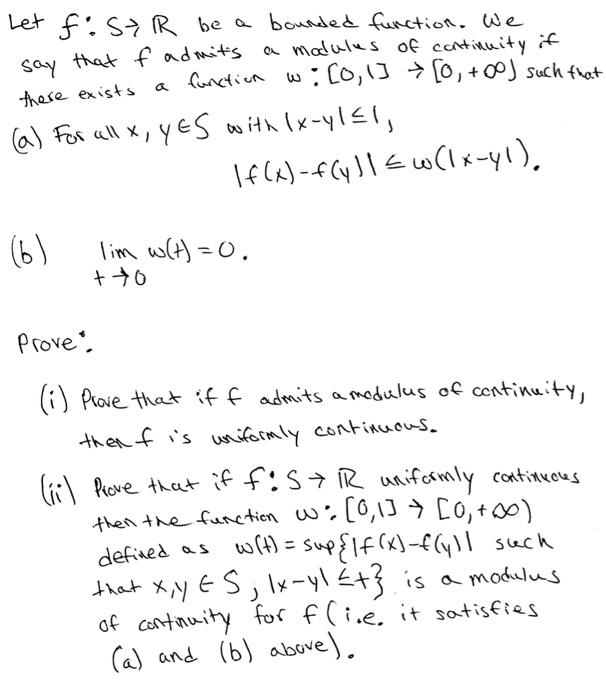 Let f: S → ℝ be a bounded function. We
say that f admits a modulus of continuity if
there exists a function w: [0,1] → [0,+∞) such that
(a) For all x, y ∈ S with |x-y| ≤ 1,
|f(x)-f(y)| ≤ w(|x-y|).
(b) lim w(t) = 0.
t→0
Prove:
(i) Prove that if f admits a modulus of continuity,
then f is uniformly continuous.
(ii) Prove that if f: S → ℝ uniformly continuous
then the function w: [0,1] → [0,+∞)
defined as w(t) = sup{|f(x)-f(y)| such
that x,y ∈ S ; |x-y| ≤ t} is a modulus
of continuity for f (i.e. it satisfies
(a) and (b) above).